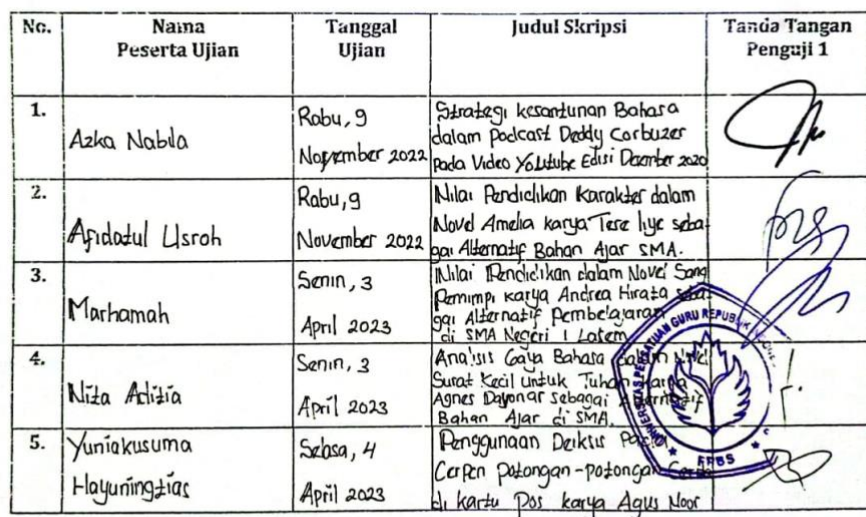 No.
Nama
Peserta Ujian
Tanggal
Ujian
Judul Skripsi
Tanda Tangan
Penguji 1
1.
Azka Nabila
Rabu, 9
November 2022
Strategi kesantunan Bahasa
dalam Podcast Deddy Corbuzer
pada Video Youtube Edisi Desember 2020
2.
Afidatul Usroh
Rabu, 9
November 2022
Nilai Pendidikan Karakter dalam
Novel Amelia karya Tere liye seba-
gai Alternatif Bahan Ajar SMA.
3.
Marhamah
Senin, 3
April 2023
Nilai Pendidikan dalam Novel Sang
Pemimpi karya Andrea Hirata seba-
gai Alternatif Pembelajaran
di SMA Negeri 1 Lasem
4.
Nita Aditia
Senin, 3
April 2023
Analisis Gaya Bahasa dalam Novel
Surat Kecil untuk Tuhan
Agnes Davonar sebagai Alternatif
Bahan Ajar di SMA.
5.
Yuniakusuma
Hayuningtias
Selasa, 4
April 2023
Penggunaan Deiksis Pada
Cerpen potongan-potongan
di kartu Pos karya Agus Noor
UNIVERSITAS PERSATUAN GURU REPUBLIK
FPBS